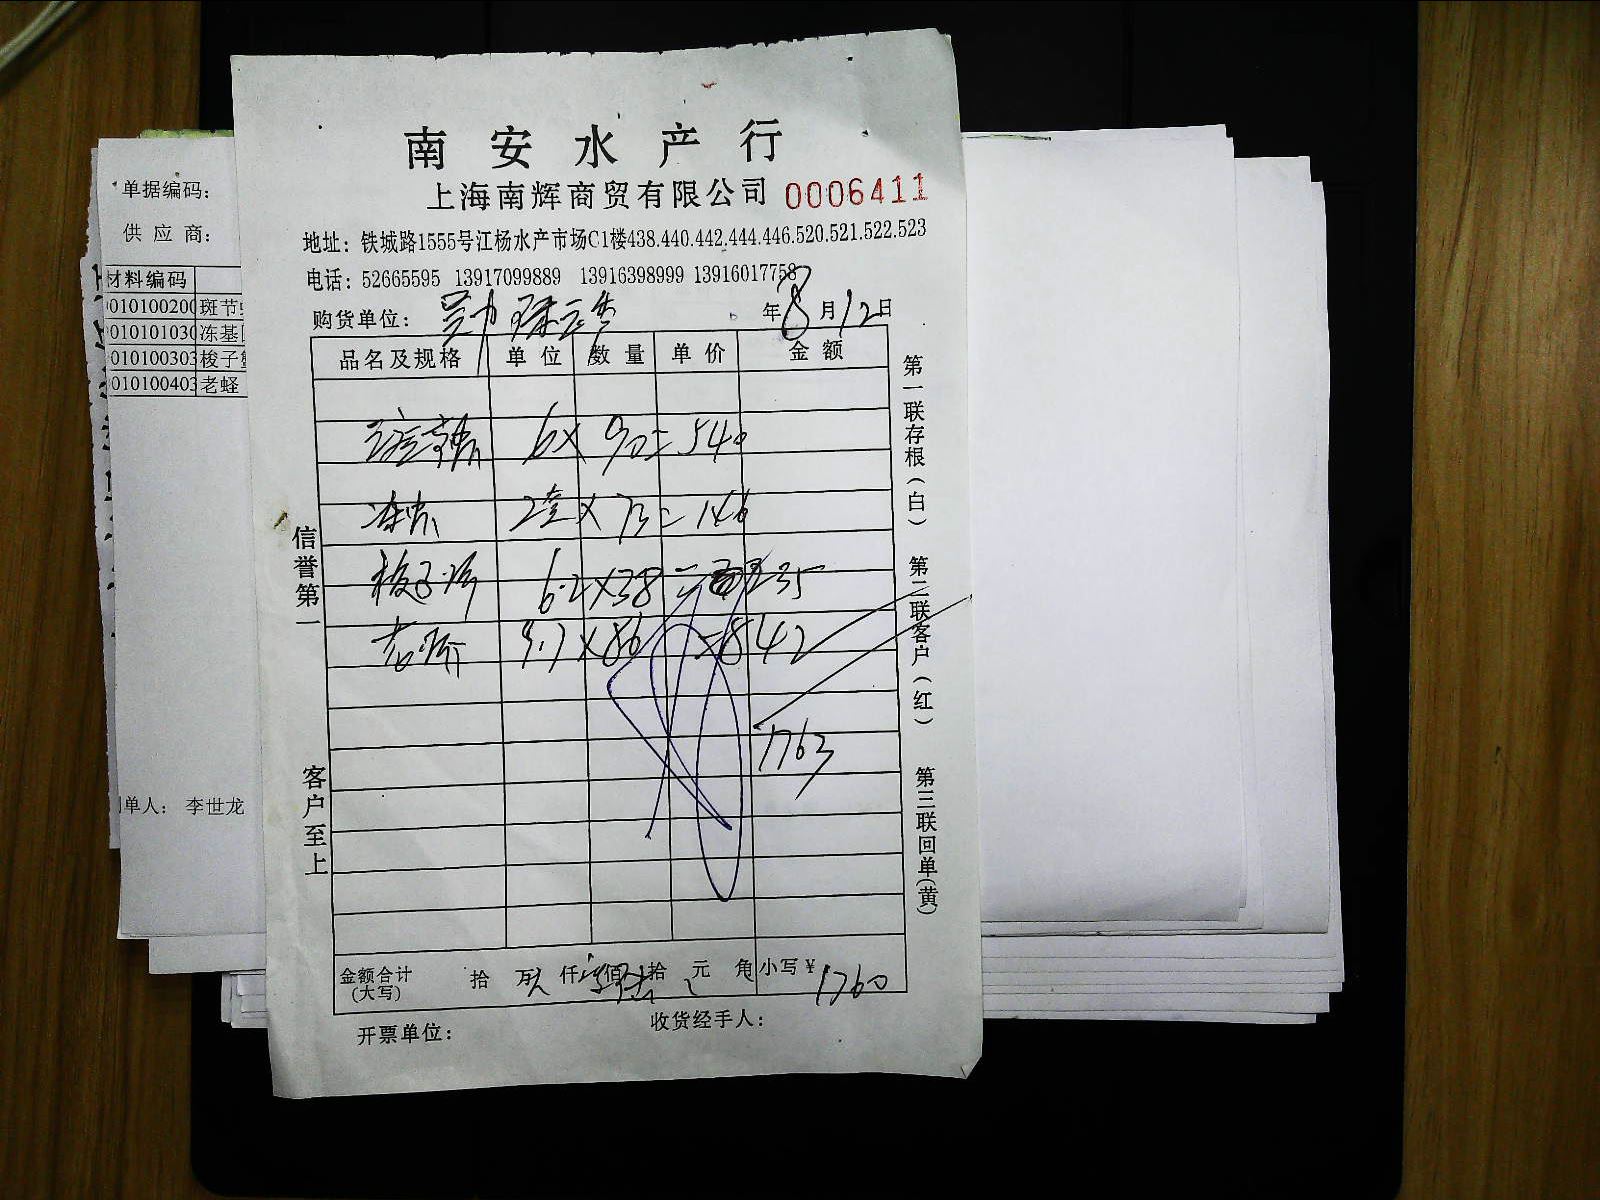 南安水产行
上海南辉商贸有限公司 0006411
地址：铁城路1555号江杨水产市场C1楼438.440.442.444.446.520.521.522.523
电话：52665595 13917099889 13916398999 13916017758
购货单位： 年8月12日
品名及规格 单位 数量 单价 金额
6×90=540
2 ×73=146
梭子 6.2×38= 235
老 9.7×86 =842
1763
金额合计(大写) 拾 万 仟 佰 拾 元 角 小写￥1760
开票单位： 收货经手人：
信誉第一
客户至上
第一联存根(白)
第二联客户(红)
第三联回单(黄)
单据编码：
供应商：
材料编码
010100200 斑节
010101030 冻基
010100303 梭子蟹
010100403 老蛏
单人： 李世龙